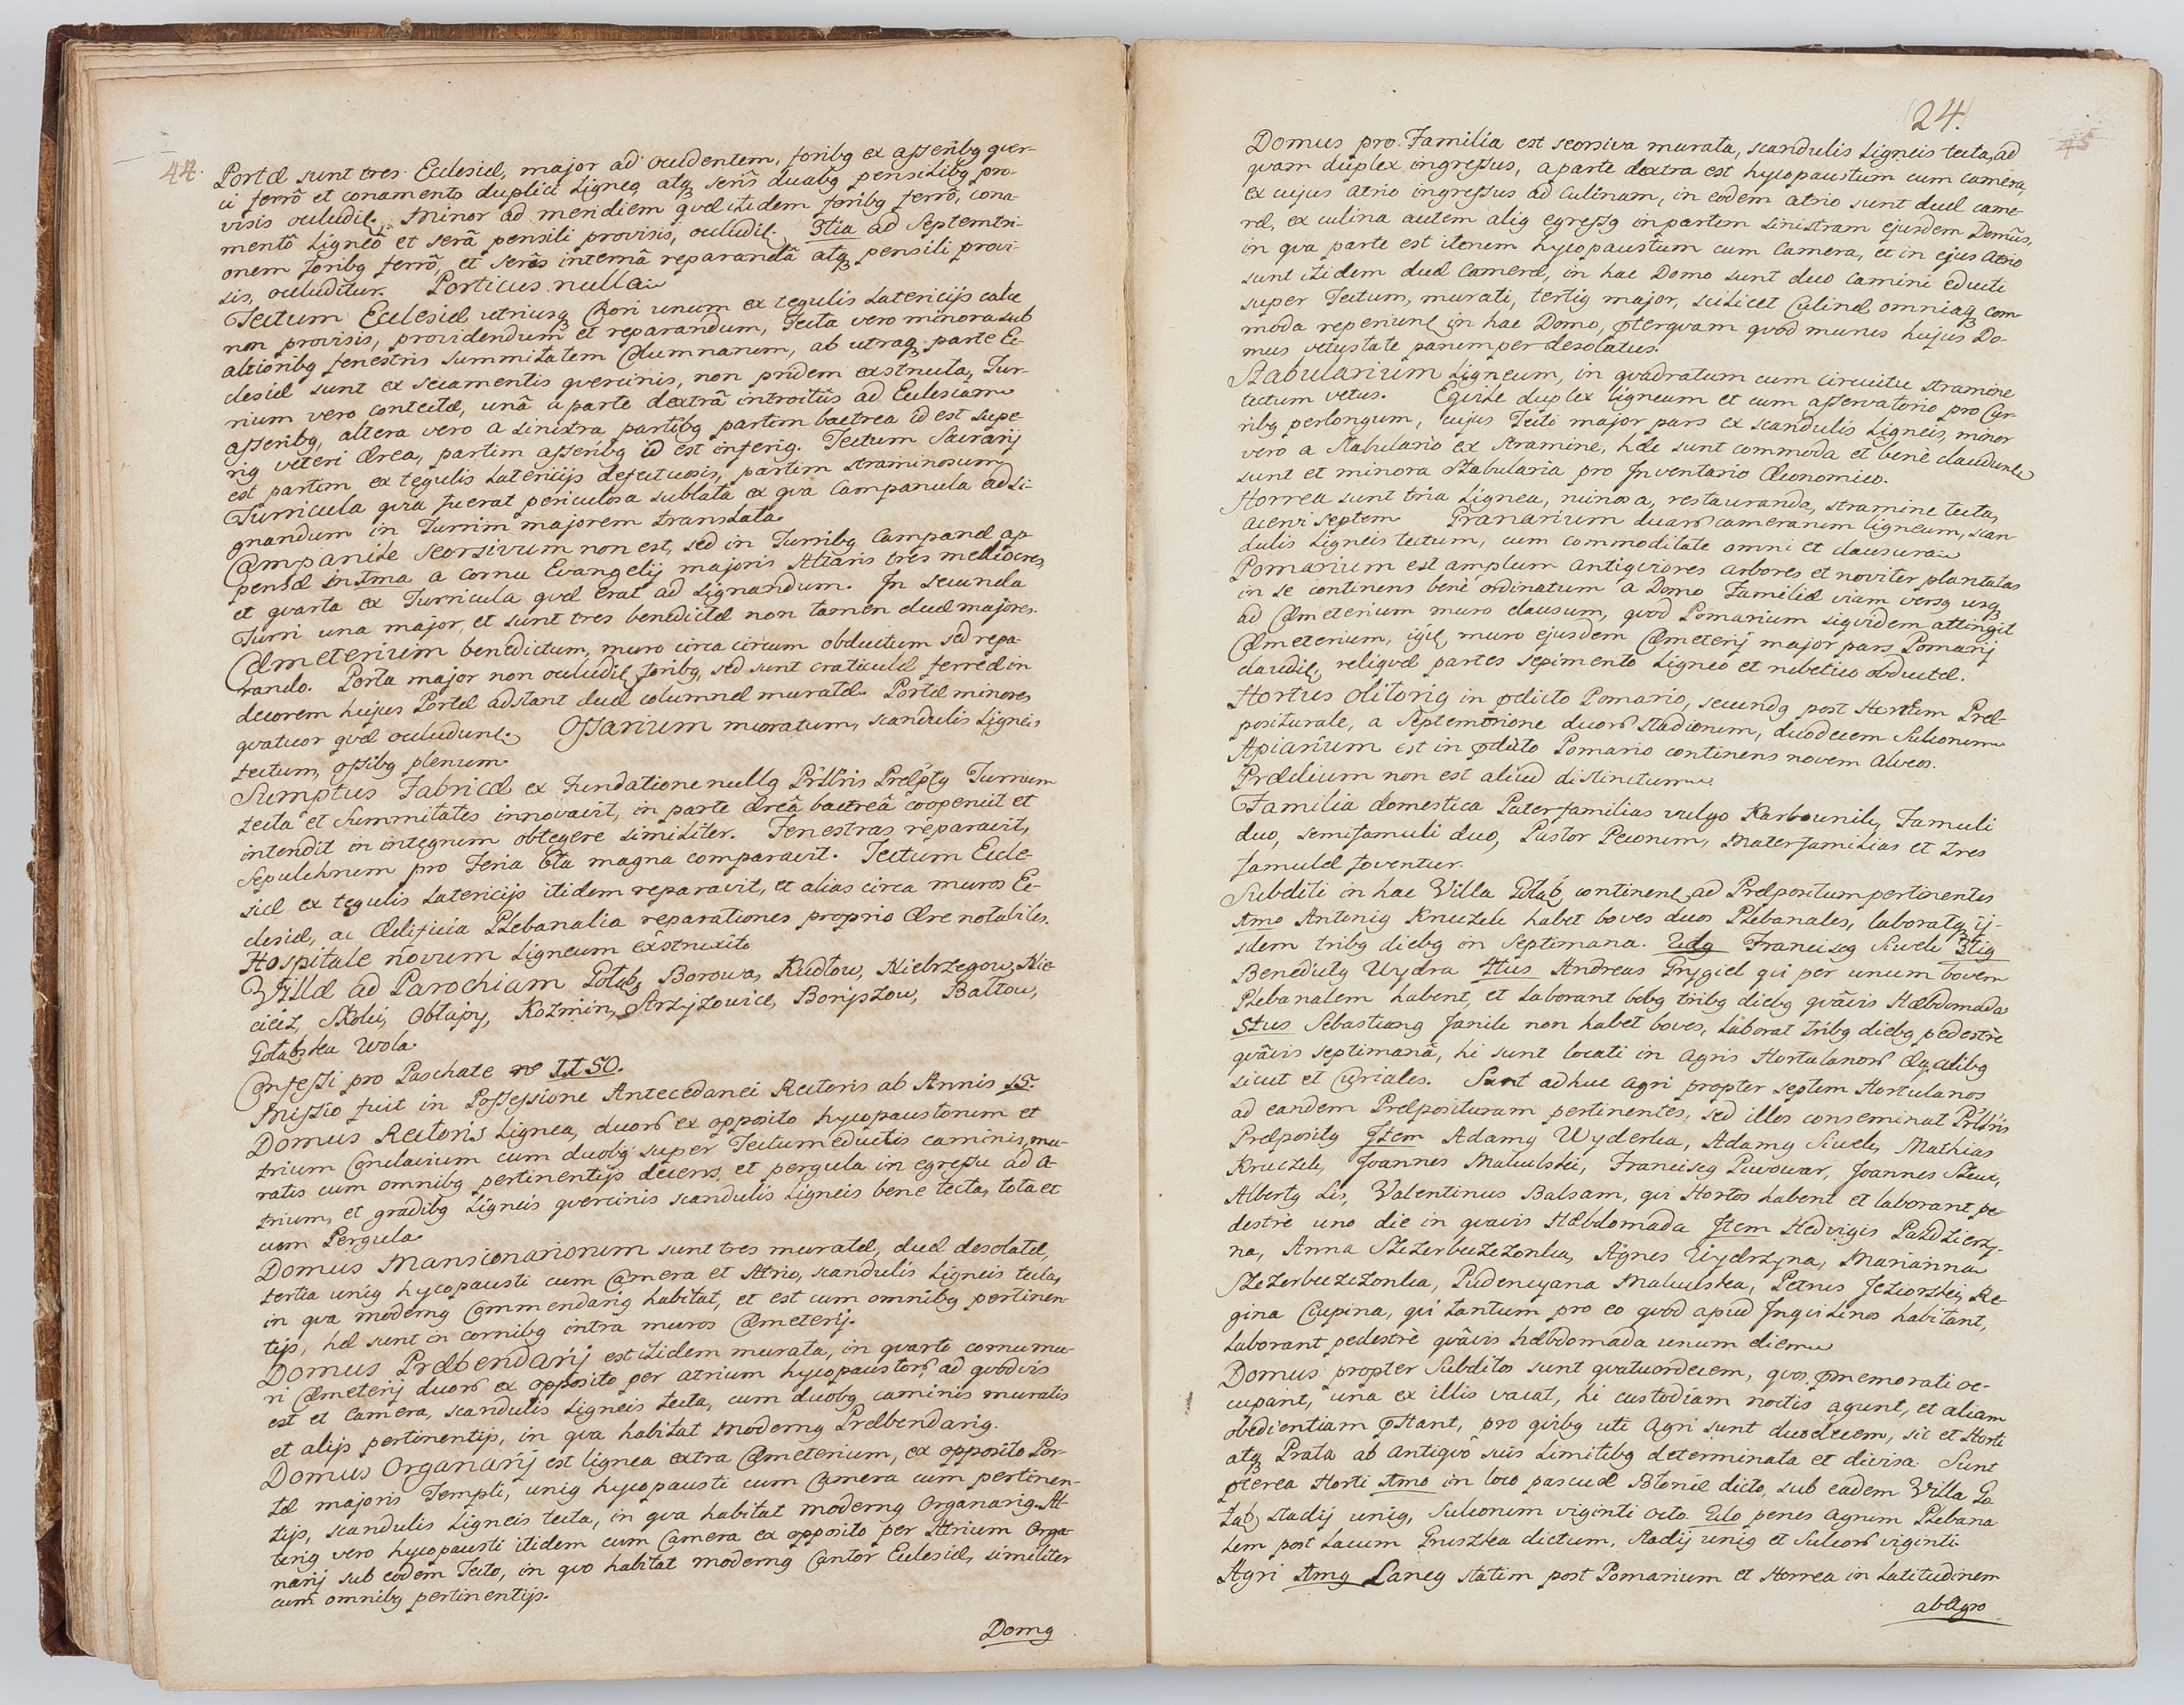 44.
Portæ sunt tres Ecclesiæ, major ad occidentem, foribꝯ ex asseribꝯ quer-
ci ferrô et conamento duplici ligneo atqꝫ serîs duabꝯ pensilibꝯ pro-
visis occludit. Minor ad meridiem quæ itidem foribꝯ ferrô, cona-
mentô ligneô et serâ pensili provisis, occludit. 3tia ad Septemtri-
onem foribꝯ ferrô, et serâs internâ reparandâ atqꝫ pensili provi-
sis, occluditur. Porticus nulla
Tectum Ecclesiæ utriusqꝫ Chori unum ex tegulis latericijs calce
non provisis, providendum et reparandum, Tecta vero minora sub
altioribꝯ fenestris summitatem Columnarum, ab utraqꝫ parte Ec-
clesiæ sunt ex secamentis quercinis, non pridem exstructa, Tur-
rium vero contectæ, unâ a parte dextrâ introitûs ad Ecclesiam
asseribꝯ, altera vero a sinistra partibꝯ partim bactrea id est supe-
riꝯ veteri ærea, partim asseribꝯ id est inferiꝯ. Tectum Sacrarij
est partim ex tegulis latericijs defectuosis, partim straminosum
Turricula quia fuerat periculosa sublata ex qua Campanula ad si-
gnandum in Turrim majorem translata.
Campanile seorsivum non est, sed in Turribꝯ Campanæ ap-
pensæ in 1ma a cornu Evangelij majoris Altaris tres mediocres,
et quarta ex Turricula quæ erat ad signandum. In secunda
Turri una major, et sunt tres benedictæ non tamen duæ majores.
Cæmeterium benedictum, muro circa circum obductum sed repa-
rando. Porta major non occludit foribꝯ, sed sunt craticulæ ferreæ in
decorem hujus Portæ adstant duæ columnæ muratæ. Portæ minores
quatuor quæ occludunt. Ossarium muratum, scandulis ligneis
tectum, ossibꝯ plenum.
Sumptus Fabricæ ex Fundatione nullꝯ Pr̃ttris Præpꝯtꝯ Turrium
tecta et Summitates innovavit, in parte æreâ bactreâ cooperuit et
intendit in integrum obtegere similiter. Fenestras reparavit,
Sepulchrum pro Feria 6ta magna comparavit. Tectum Eccle-
siæ ex tegulis latericijs itidem reparavit, et alias circa muros Ec-
clesiæ, ac Ædificia Plebanalia reparationes proprio ære notabiles.
Hospitale novum ligneum exstruxit
Villæ ad Parochiam Gołąb, Borowa, Rudtow, Niebrzegow, Nie-
ciecz, Skoki, Obłapy, Kozmin, Strzyzowice, Boryszow, Bałtow,
Gołąbska Wola.
Confessi pro Paschate nro 1150.
Missio fuit in Possessione Antecedanei Rectoris ab Annis 15.
Domus Rectoris lignea, duorũ ex opposito hypopaustorum et
trium Conclavium cum duobꝯ super Tectum eductis caminis, mu-
ratis cum omnibꝯ pertinentijs decens, et pergula in egressu ad A-
trium, et gradibꝯ ligneis quercinis scandulis ligneis bene tecta, tota et
cum Pergula.
Domus Mansionariorum sunt tres muratæ, duæ desolatæ,
tertia uniꝯ hypopausti cum Camera et Atrio, scandulis ligneis tecta,
in qua modernꝯ Commendariꝯ habitat, et est cum omnibꝯ pertinen-
tijs, hæ sunt in cornibꝯ intra muros Cæmeterij.
Domus Præbendarij est itidem murata, in quarto cornu mu-
ri Cæmeterij duorũ ex opposito per atrium hypopaustorũ, ad quodvis
est et Camera, scandulis ligneis tecta, cum duobꝯ caminis muratis
et alijs pertinentijs, in qua habitat modernꝯ Præbendariꝯ.
Domus Organarij est lignea extra Cæmeterium, ex opposito Por-
tæ majoris Templi, uniꝯ hypopausti cum Camera cum pertinen-
tijs, scandulis ligneis tecta, in qua habitat modernꝯ Organariꝯ. Al-
teriꝯ vero hypopausti itidem cum Camera ex opposito per Atrium Orga-
narij sub eodem Tecto, in quo habitat modernꝯ Cantor Ecclesiæ, similiter
cum omnibꝯ pertinentijs.
Domꝯ
24.
45
Domus pro Familia est seorsiva murata, scandulis ligneis tecta, ad
quam duplex ingressus, a parte dextra est hypopaustum cum camera,
ex cujus atrio ingressus ad culinam, in eodem atrio sunt duæ came-
ræ, ex culina autem aliꝯ egressꝯ in partem sinistram ejusdem Domûs,
in qua parte est iterum hypopaustum cum Camera, et in ejus atrio
sunt itidem duæ Cameræ, in hac Domo sunt duo Camini educti
super Tectum, murati, tertiꝯ major, scilicet Culinæ omniaqꝫ com-
moda reperiunt in hac Domo, p̃terquam quod murus hujus Do-
mus vetustate parumper desolatus.
Stabularium ligneum, in quadratum cum circuitu stramine
tectum vetus. Equile duplex ligneum et cum asservatorio pro Cur-
ribꝯ perlongum, cujus Tecti major pars ex scandulis ligneis, minor
vero a Stabulario ex stramine, hæc sunt commoda et benè claudunt
sunt et minora Stabularia pro Inventario Œconomico.
Horrea sunt tria lignea, ruinosa, restauranda, stramine tecta,
acervi septem. Granarium duarũ camerarum ligneum, scan-
dulis ligneis tectum, cum commoditate omni et clausura
Pomarium est amplum antiquiores arbores et noviter plantatas
in se continens benè ordinatum a Domo Familiæ viam versꝯ usqꝫ
ad Cæmeterium muro clausum, quod Pomarium siquidem attingit
Cæmeterium, igit muro ejusdem Cæmeterij major pars Pomarij
claudit, reliquæ partes sepimento ligneo et rubetico obductæ.
Hortus olitoriꝯ in p̃dicto Pomario, secundꝯ post Hortum Præ-
positurale, a Septemtrione duorũ Stadiorum, duodecem Sulcorum
Apiarium est in p̃dicto Pomario continens novem alveos.
Prædium non est aliud distinctum.
Familia domestica Paterfamilias vulgo Karbownik, Famuli
duo, semifamuli duo, Pastor Pecorum, Materfamilias et tres
famulæ foventur.
Subditi in hac Villa Gołąb continent ad Præpositum pertinentes
1mo Antoniꝯ Kruczek habet boves duos Plebanales, laboratqꝫ ij-
sdem tribꝯ diebꝯ in Septimana. 2dꝯ Franciscꝯ Siwek 3tiꝯ
Benedictꝯ Wydra 4tus Andreas Grygiel qui per unum bovem
Plebanalem habent, et laborant bobꝯ tribꝯ diebꝯ quâvis Hebdomada
5tus Sebastianꝯ Janik non habet boves, laborat tribꝯ diebꝯ pedestrè
quâvis septimanâ, hi sunt locati in agris Hortulanorũ æqualibꝯ
sicut et Curiales. Sunt adhuc Agri propter septem Hortulanos
ad eandem Præposituram pertinentes, sed illos conseminat Pr̃ttris
Præpositꝯ Item Adamꝯ Wyderka, Adamꝯ Siwek, Mathias
Kruczek, Joannes Makulski, Franciscꝯ Piwowar, Joannes Szewc,
Albertꝯ Lis, Valentinus Balsam, qui Hortos habent et laborant pe-
destrè uno die in quavis Hebdomada Item Hedvigis Pazdzierzy-
na, Anna Szczerbuczczonka, Agnes Wydrzyna, Marianna
Szczerbuczczonka, Pudencyana Makulska, Petrus Jeziorski, Re-
gina Cupina, qui tantum pro eo quod apud Inquilinos habitant,
laborant pedestrè quâvis hæbdomada unum diem
Domus propter Subditos sunt quatuordecem, quos p̃memorati oc-
cupant, una ex illis vacat, hi custodiam noctis agunt, et aliam
obedientiam p̃stant, pro quibꝯ uti Agri sunt duodecem, sic et Horti
atqꝫ Prata ab antiquô suis limitibꝯ determinata et divisa. Sunt
p̃terea Horti 1mo in loco pascuæ Błonie dicto, sub eadem Villa Go-
łąb stadij uniꝯ, Sulcorum viginti octo. 2do penes Agrum Plebana-
lem post Lacum Gruszka dictum, stadij uniꝯ et Sulcorũ viginti.
Agri 1mꝯ Laneꝯ statim post Pomarium et Horrea in latitudinem
ab Agro